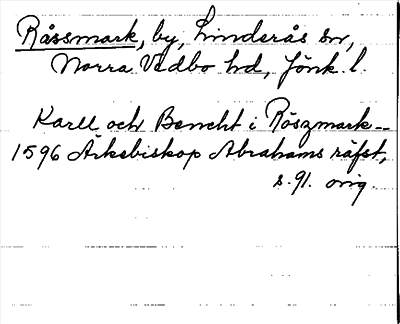 Råssmark, by, Linderås sn,
Norra Vedbo hd, Jönk. l.
Karll och Bencht i Röszmark --
1596 Ärkebiskop Abrahams räfst,
s. 91. orig.